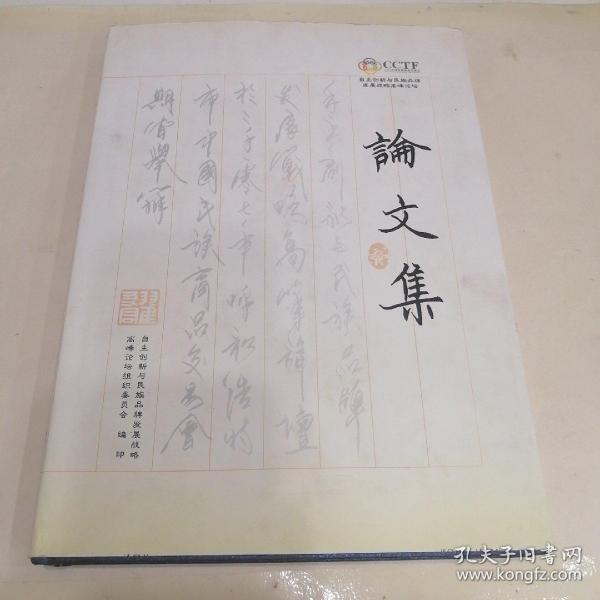 CCTF
自主创新与民族品牌
发展战略高峰论坛
論文集
自主創新与民族品牌
发展戰略高峰論壇
於二千零七年呼和浩特
市中國民族商品交易會
期間舉辦
自主创新与民族品牌发展战略
高峰论坛组织委员会 编印
孔夫子旧书网
www.kongfz.com